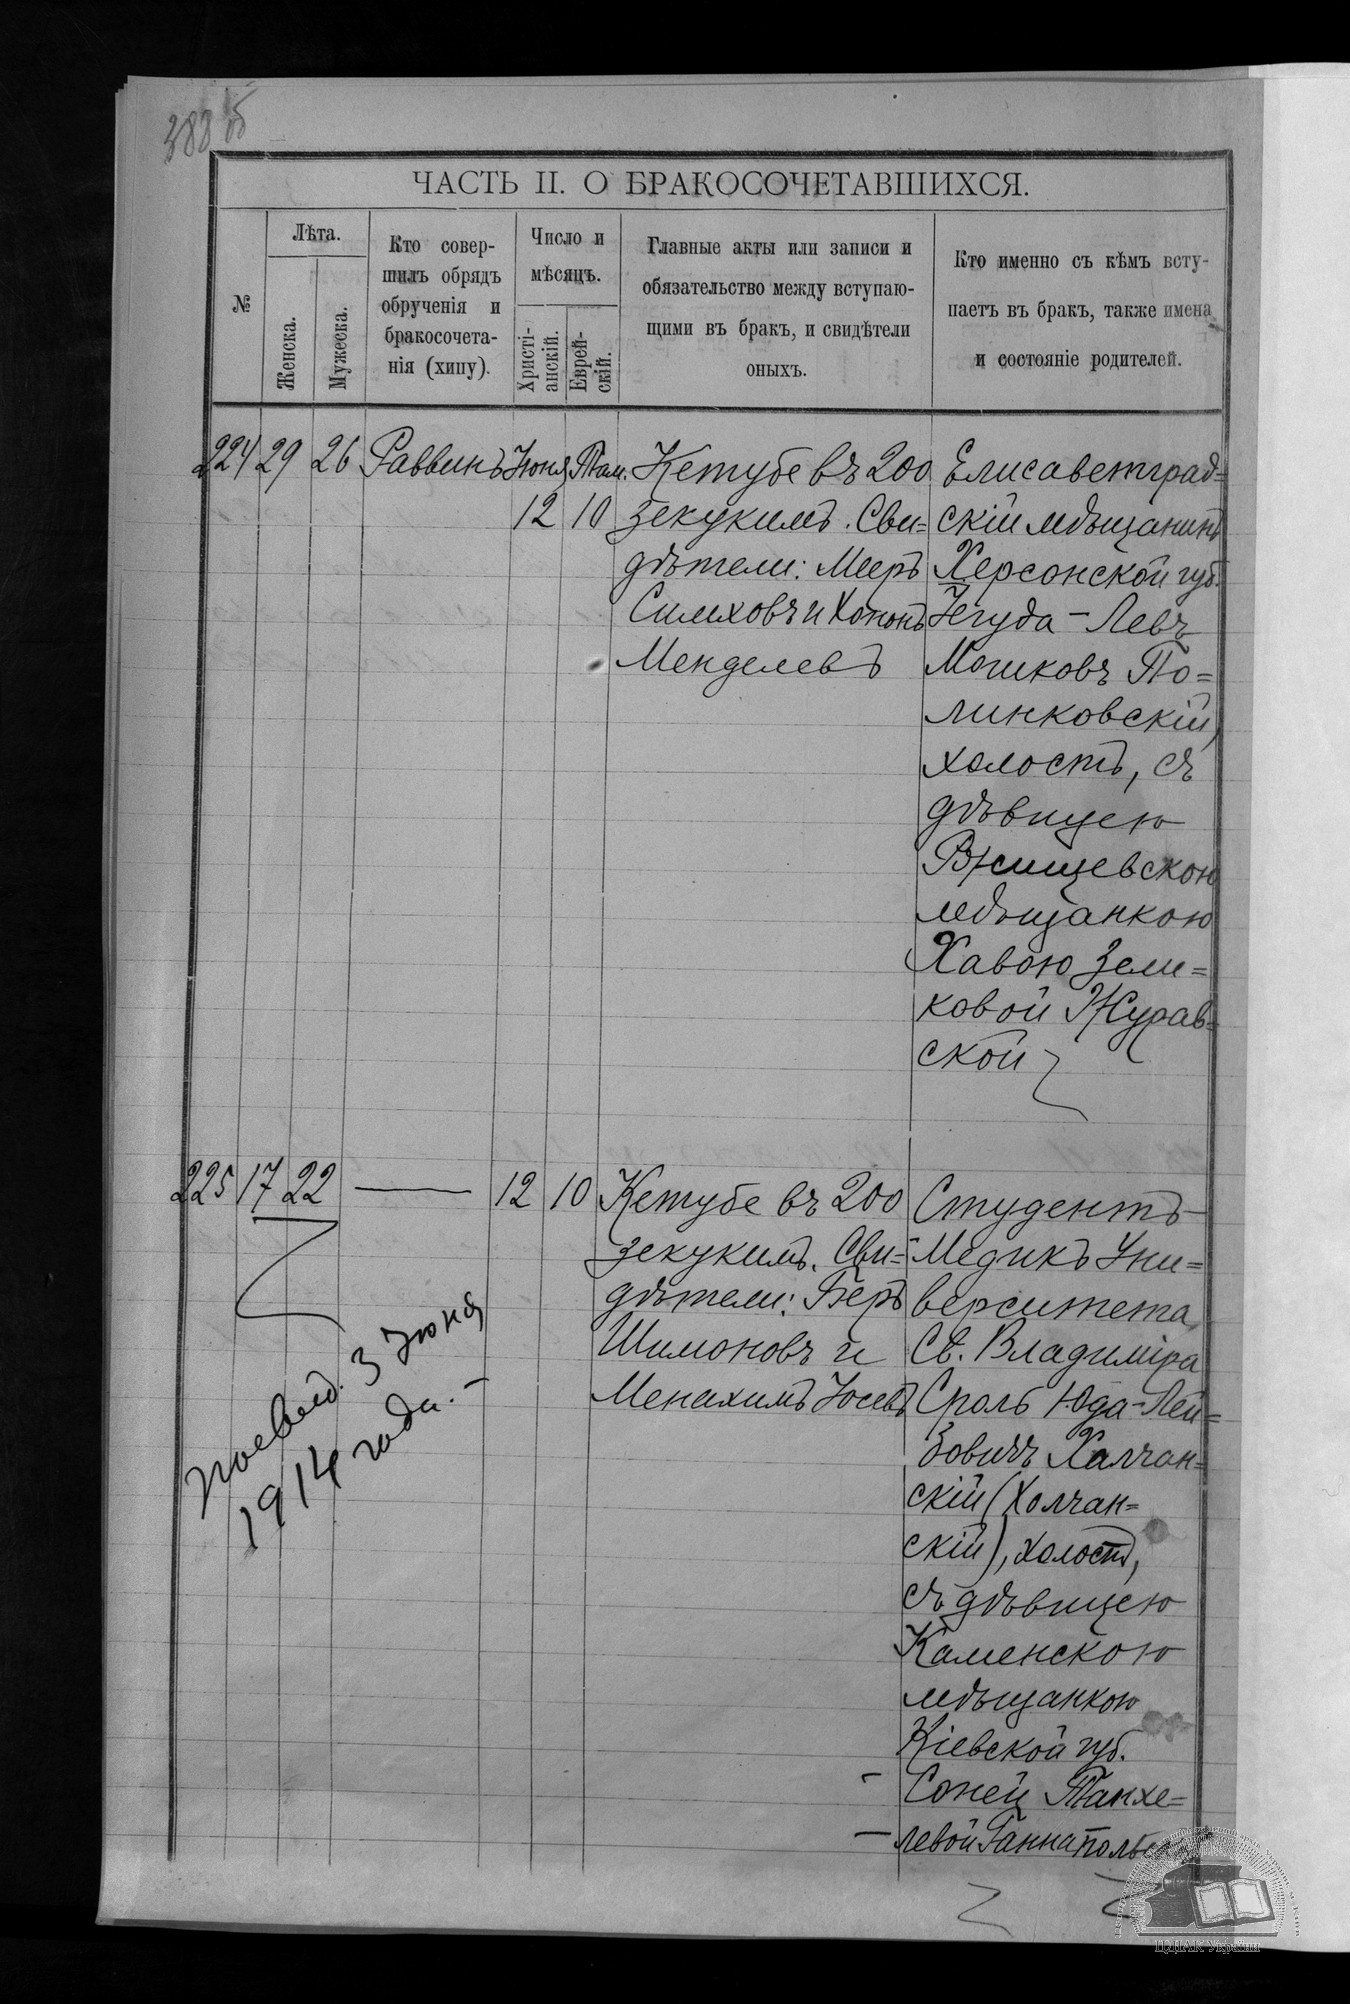 388 об
ЧАСТЬ II. О БРАКОСОЧЕТАВШИХСЯ.
№
Лѣта.
Женска.
Мужеска.
Кто совер-
шилъ обрядъ
обрученія и
бракосочета-
нія (хипу).
Число и
мѣсяцъ.
Христі-
анскій.
Еврей-
скій.
Главные акты или записи и
обязательство между вступаю-
щими въ бракъ, и свидѣтели
оныхъ.
Кто именно съ кѣмъ всту-
паетъ въ бракъ, также имена
и состояніе родителей.
224 29 26 Раввинъ Іюня Там.
12 10
Кетубе въ 200
зекукимъ. Сви=
дѣтели: Мееръ
Симховъ и Хононъ
Менделевъ
Елисаветград=
скій мѣщанинъ
Херсонской губ.
Іегуда-Левъ
Мошковъ По=
линковскій,
холостъ, съ
дѣвицею
Ржищевскою
мѣщанкою
Хавою Зели=
ковой Журав=
ской
225 17 22 — 12 10
Кетубе въ 200
зекукимъ. Сви=
дѣтели: Беръ
Шимоновъ и
Менахимъ Іосевъ
Студентъ-
Медикъ Уни=
верситета
Св. Владиміра
Сроль Юда-Лей=
бовичъ Халчан=
скій (Холчан=
скій), холостъ,
съ дѣвицею
Каменскою
мѣщанкою
Кіевской губ.
Соней Танхе=
левой
3 Іюня
1914 года.
ЦДІАК України